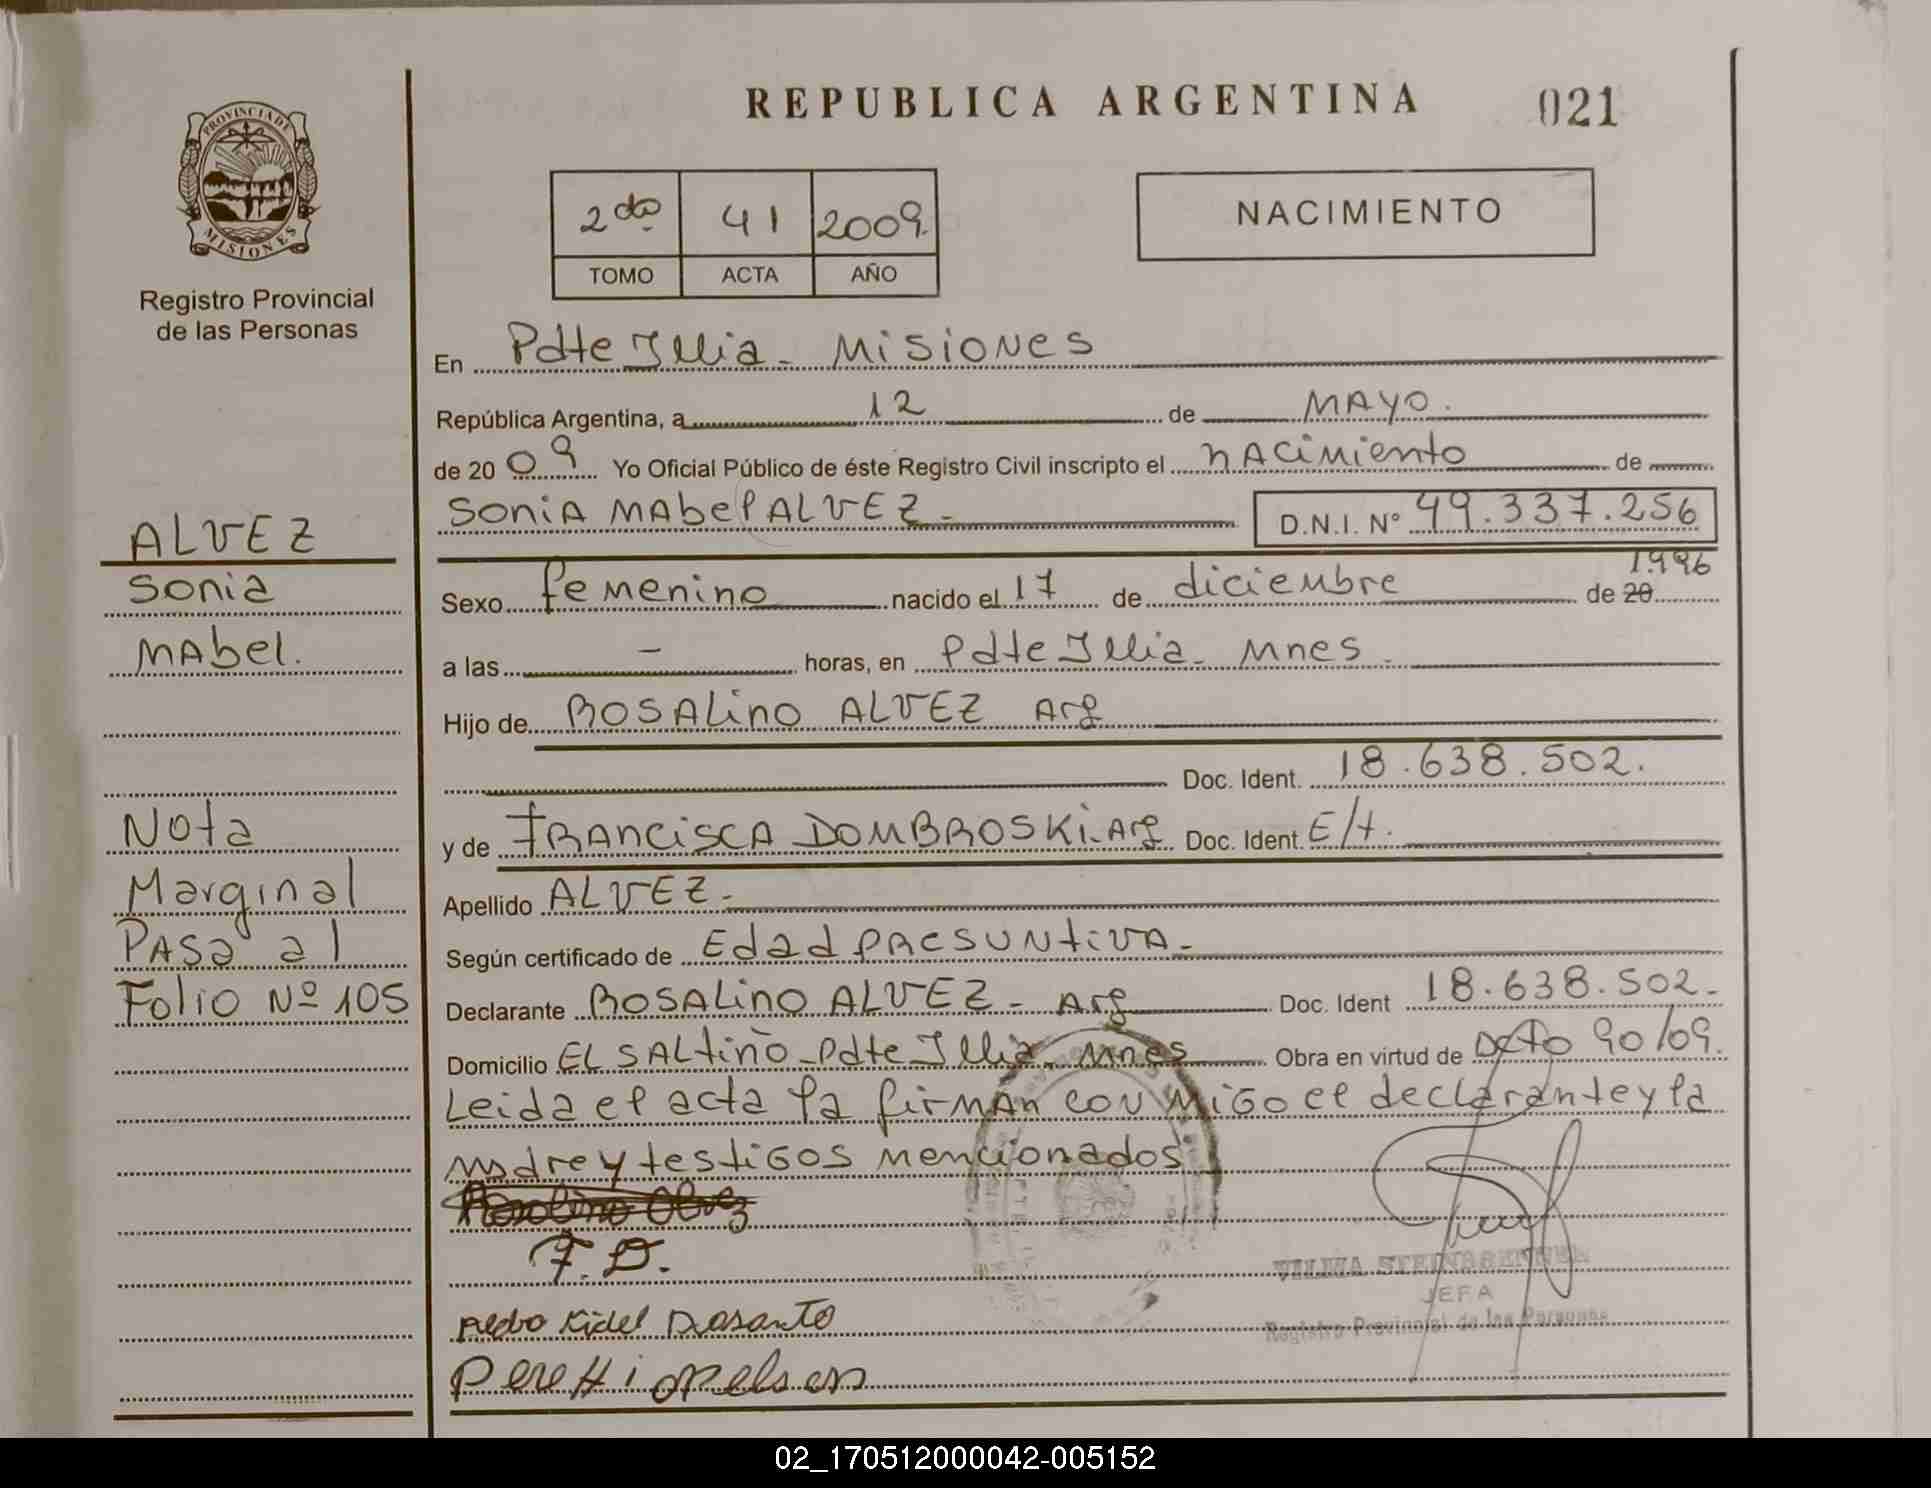 REPUBLICA ARGENTINA
021
PROVINCIA DE
MISIONES
Registro Provincial
de las Personas
2do 41 2009.
TOMO ACTA AÑO
NACIMIENTO
En Pdte Illia - Misiones
República Argentina, a 12 de MAYO.
de 2009 Yo Oficial Público de éste Registro Civil inscripto el nacimiento de
Sonia Mabel ALVEZ - D.N.I. Nº 49.337.256
ALVEZ
Sonia
Mabel.
Sexo femenino nacido el 17 de diciembre de 20 1996
a las - horas, en Pdte Illia - Mnes.
Hijo de ROSALINO ALVEZ Arg
Doc. Ident. 18.638.502.
y de FRANCISCA DOMBROSKI - Arg Doc. Ident. E/t.
Apellido ALVEZ -
Según certificado de Edad PRESUNTIVA -
Declarante ROSALINO ALVEZ - Arg Doc. Ident 18.638.502 -
Domicilio EL SALTIÑO - Pdte Illia - Mnes Obra en virtud de DCTO 90/09.
Leida el acta la firman conmigo el declarante y la
madre y testigos mencionados
Nota
Marginal
Pasa al
Folio Nº 105
F. D.
Dosanto
JEFA
Registro Provincial de las Personas
02_170512000042-005152